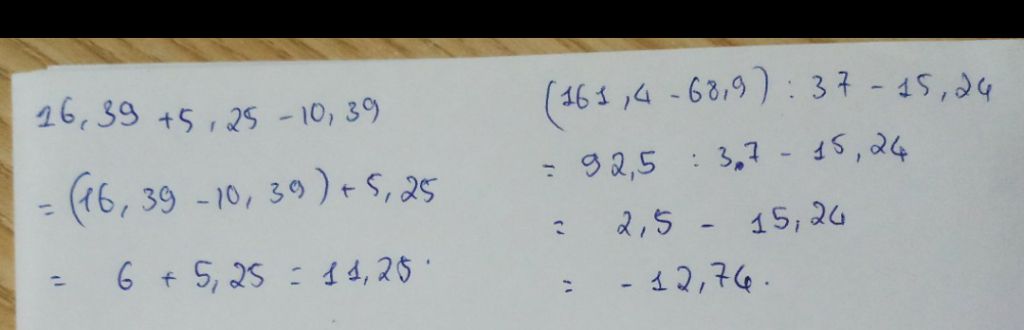 16,39 + 5,25 - 10,39
= (16,39 - 10,39) + 5,25
= 6 + 5,25 = 11,25.
(161,4 - 68,9) : 37 - 15,24
= 92,5 : 3.7 - 15,24
= 2,5 - 15,24
= - 12,74.